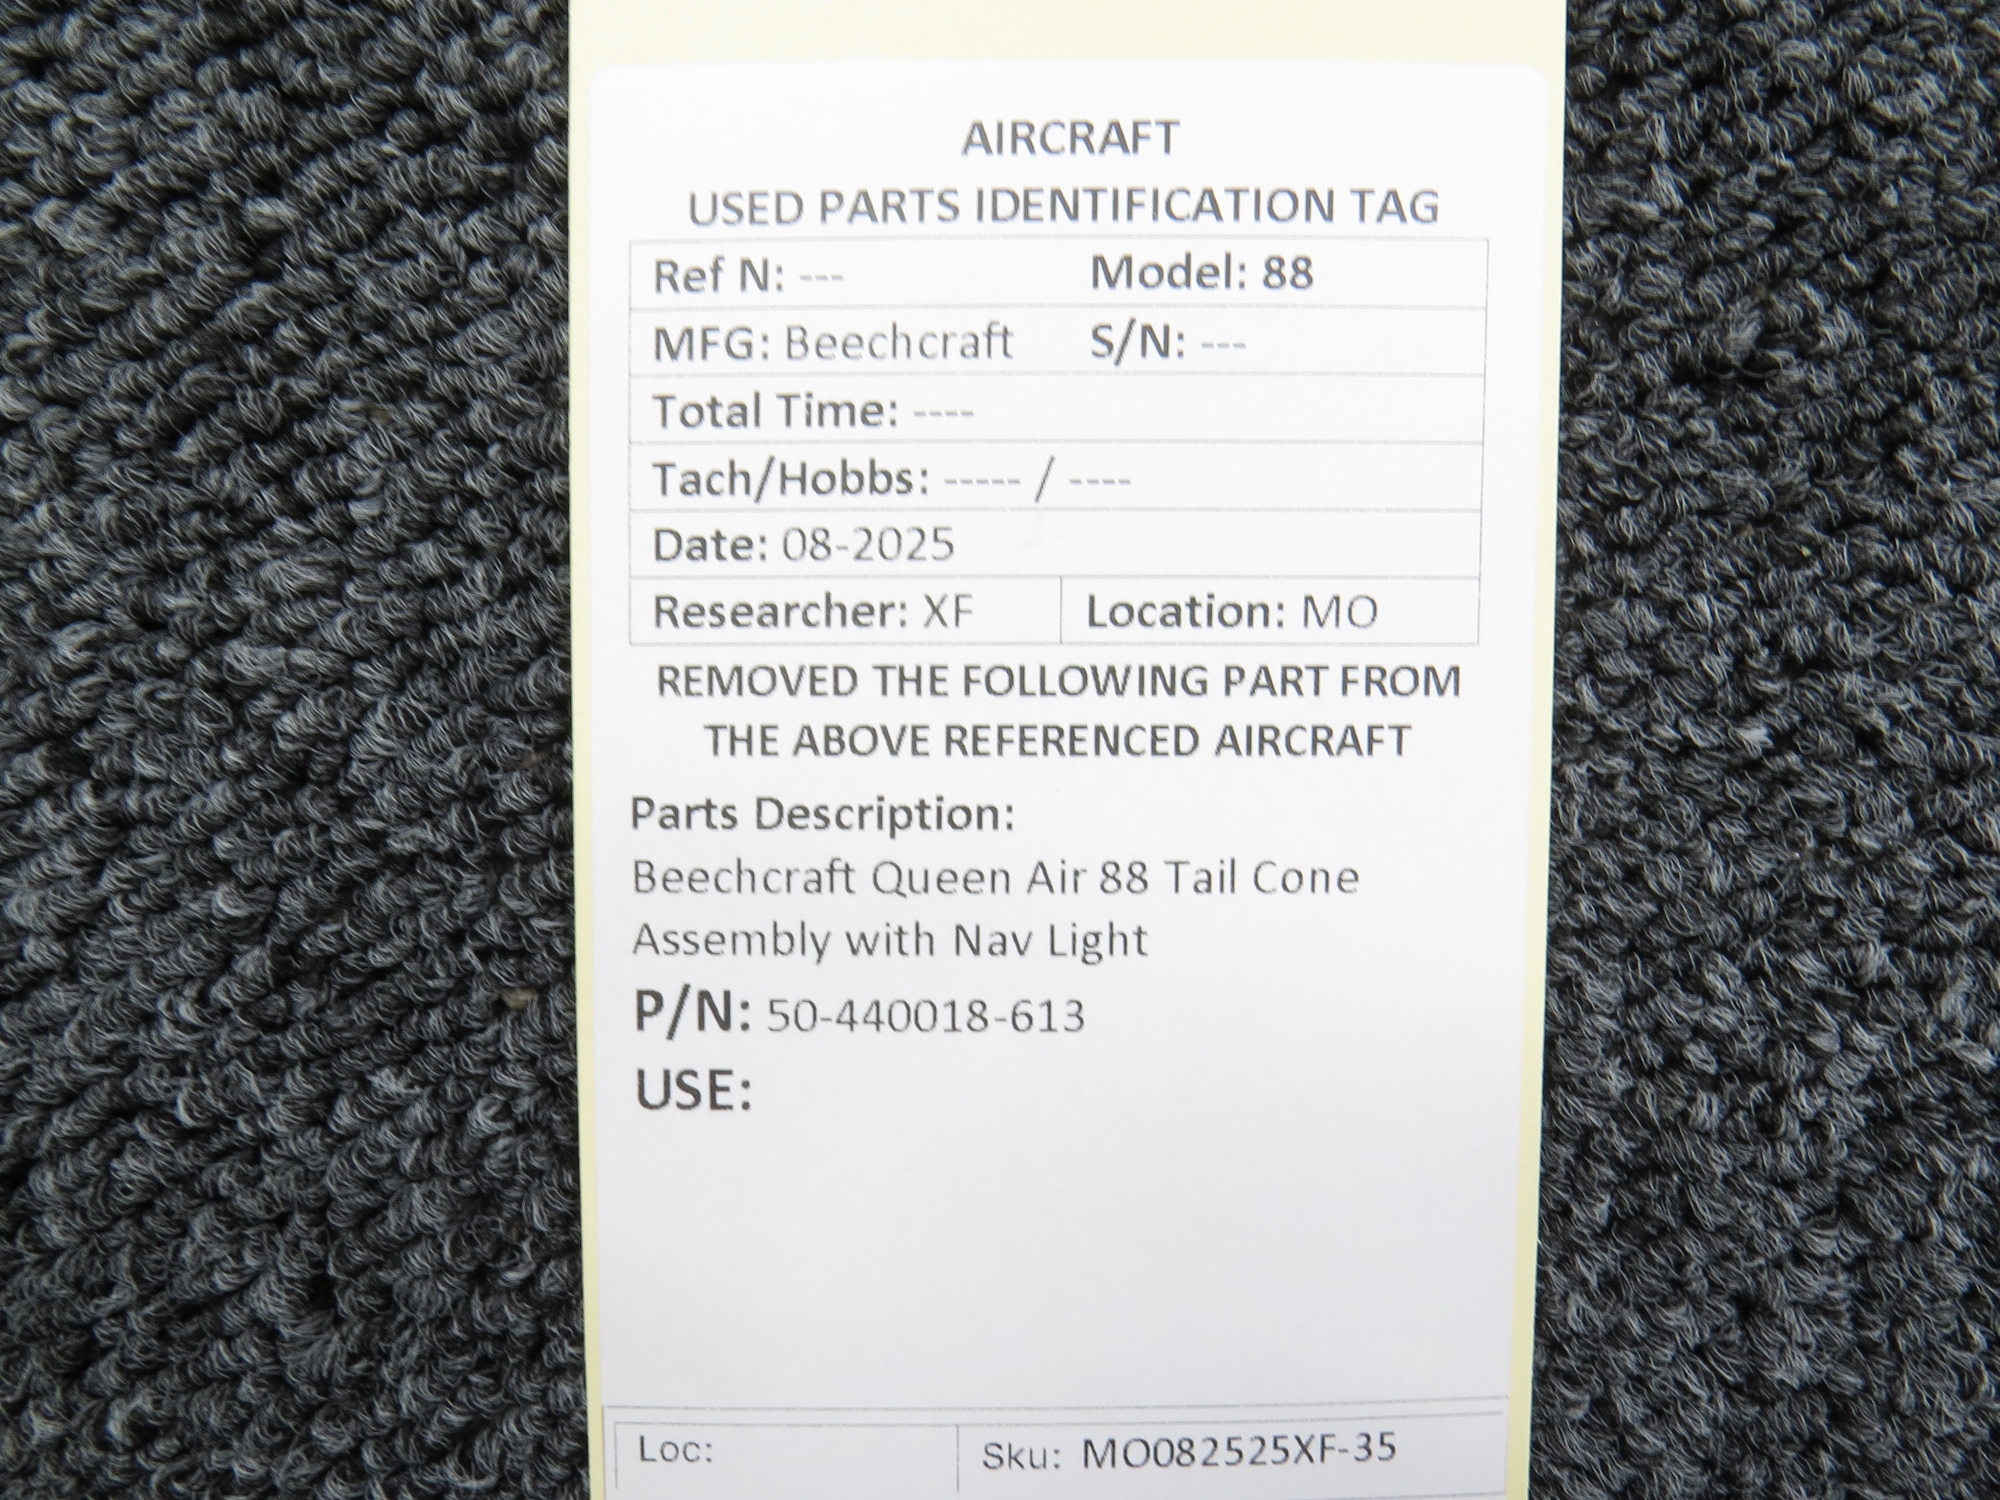 AIRCRAFT
USED PARTS IDENTIFICATION TAG
Ref N: --- Model: 88
MFG: Beechcraft S/N: ---
Total Time: ----
Tach/Hobbs: ----- / ----
Date: 08-2025
Researcher: XF Location: MO
REMOVED THE FOLLOWING PART FROM
THE ABOVE REFERENCED AIRCRAFT
Parts Description:
Beechcraft Queen Air 88 Tail Cone
Assembly with Nav Light
P/N: 50-440018-613
USE:
Loc: Sku: MO082525XF-35